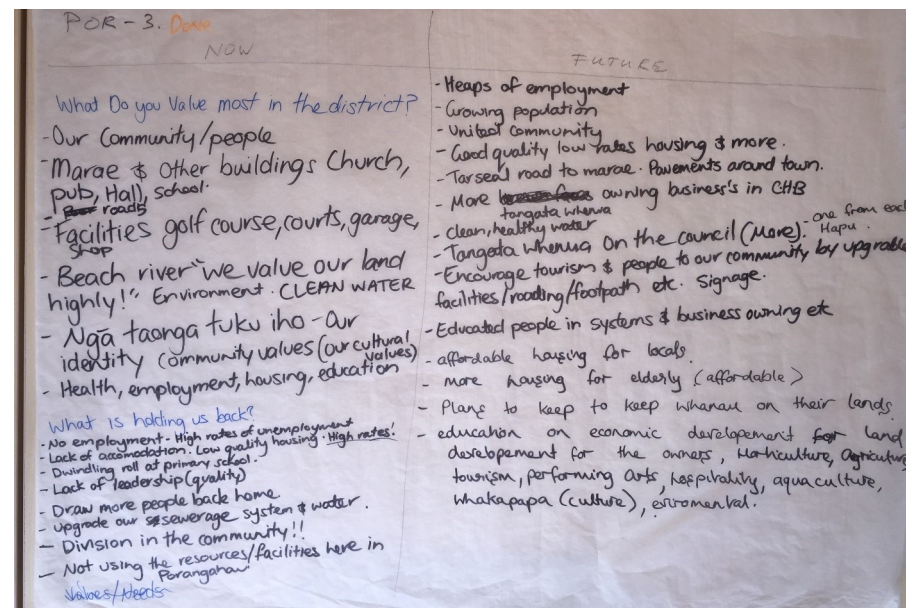 POR - 3. Done
NOW
What Do you Value most in the district?
- Our Community/people
- Marae & Other buildings Church,
pub, Hall, school.
- roads
- Facilities golf course, courts, garage,
shop
- Beach river "we value our land
highly!" Environment. CLEAN WATER
- Ngā taonga tuku iho - Our
identity community values (our cultural
values)
- Health, employment, housing, education
What is holding us back?
- No employment - High rates of unemployment
- Lack of accomodation. Low quality housing. High rates!
- Dwindling roll at primary school.
- Lack of leadership (quality)
- Draw more people back home
- Upgrade our sewerage system & water.
- Division in the community!!
- Not using the resources/facilities here in
Porangahau
Values/Needs
FUTURE
- Heaps of employment
- Growing population
- United community
- Good quality low rates housing & more.
- Tarseal road to marae. Pavements around town.
- More owning business's in CHB
tangata whenua
- clean, healthy water
- Tangata whenua on the council (More). - one from each
Hapu.
- Encourage tourism & people to our community by upgrable
facilities/roading/footpath etc. Signage.
- Educated people in systems & business owning etc
- affordable housing for locals.
- more housing for elderly (affordable)
- Plans to keep to keep whanau on their lands.
- education on economic developement for land
developement for the owners, Horticulture, Agriculture
tourism, performing arts, hospitality, aquaculture,
whakapapa (culture), enviromental.